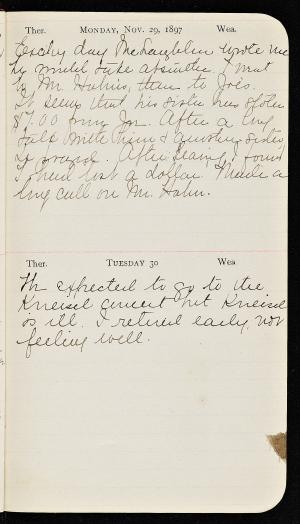 Ther. MONDAY, NOV. 29, 1897 Wea.
day McLaughlin wrote me
to Mr. Hahn's, then to Joe's.
It seems that his sister has stolen
$7.00 from Joe. After a long
talk with him & another sister,
After leaving, I found
I had lost a dollar. Made a
long call on Mr. Hahn.
Ther. TUESDAY 30 Wea.
We expected to go to the
Kneisel concert but Kneisel
is ill. I retired early, not
feeling well.